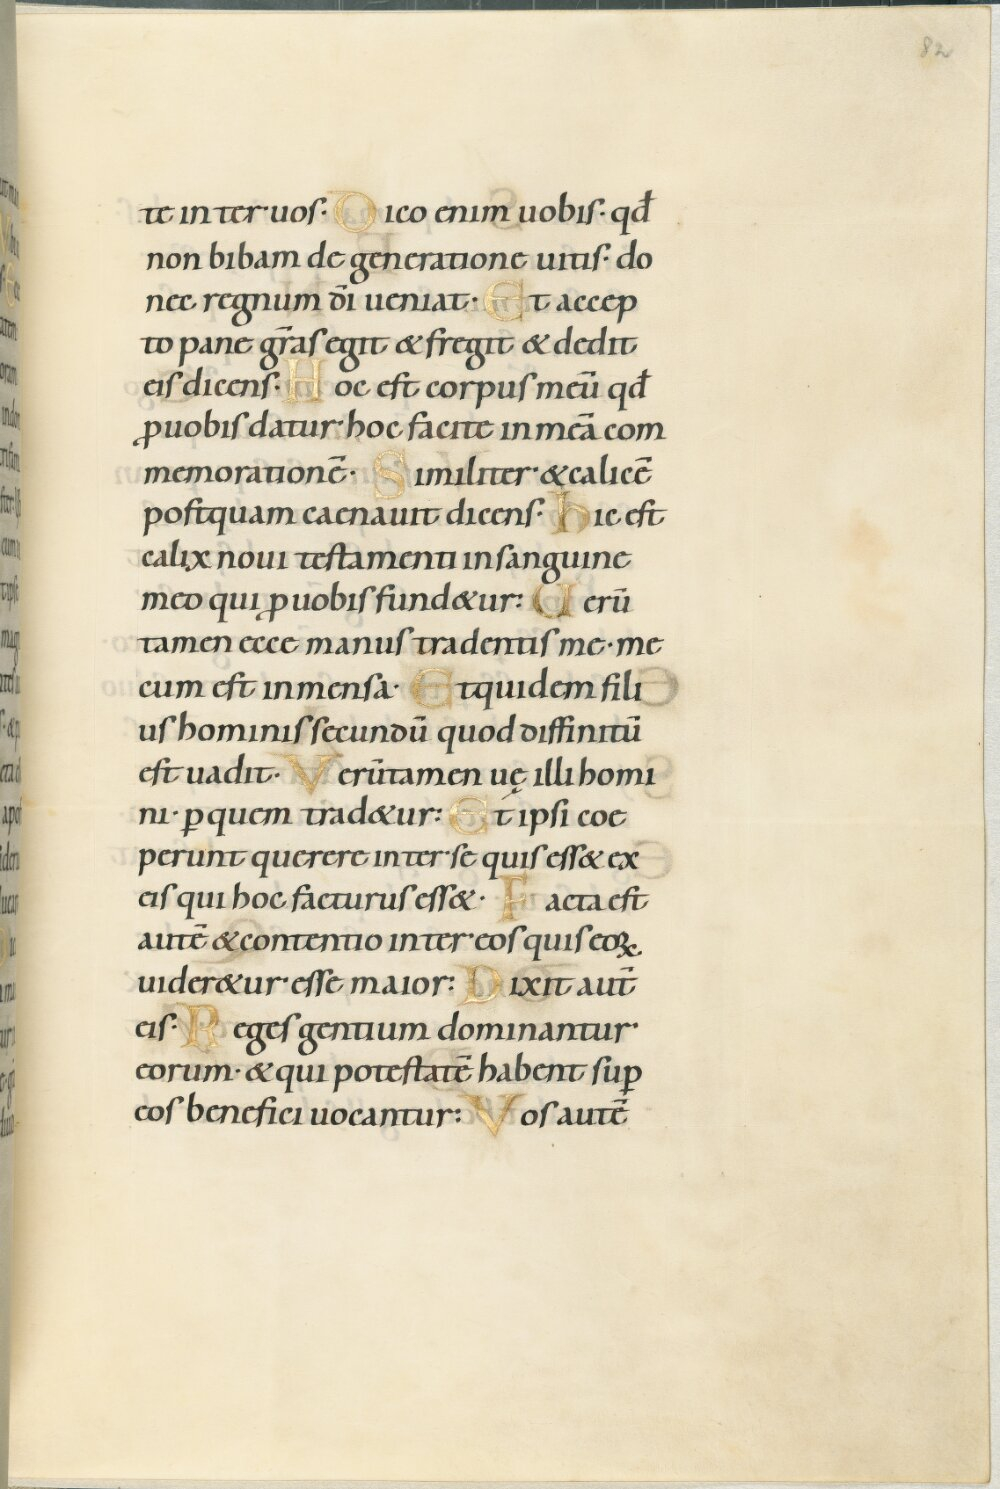 82
te inter uos· Dico enim uobis· qđ
non bibam de generatione uitis· do
nec regnum dı̄ ueniat· Et accep
to pane gr̄as egit & fregit & dedit
eis dicens· Hoc est corpus meū qđ
ꝓuobis datur· hoc facite in mēā com
memorationē· Similiter & calicē
postquam caenauit dicens· hic est
calix noui testamenti in sanguine
meo qui ꝓ uobis fund&ur: Uerū
tamen ecce manus tradentis me· me
cum est in mensa· Et quidem fili
us hominis secundū quod diffinitū
est uadit· Verūtamen uę illi homi
ni· ꝑ quem trad&ur: Et ipsi coe
perunt querere inter se quis ess& ex
eis qui hoc facturus ess&· Facta est
autē & contentio inter eos quis eoꝝ
uider&ur esse maior: Dixit aut̄
eis· Reges gentium dominantur
eorum· & qui potestatē habent suꝑ
eos benefici uocantur: Vos autē